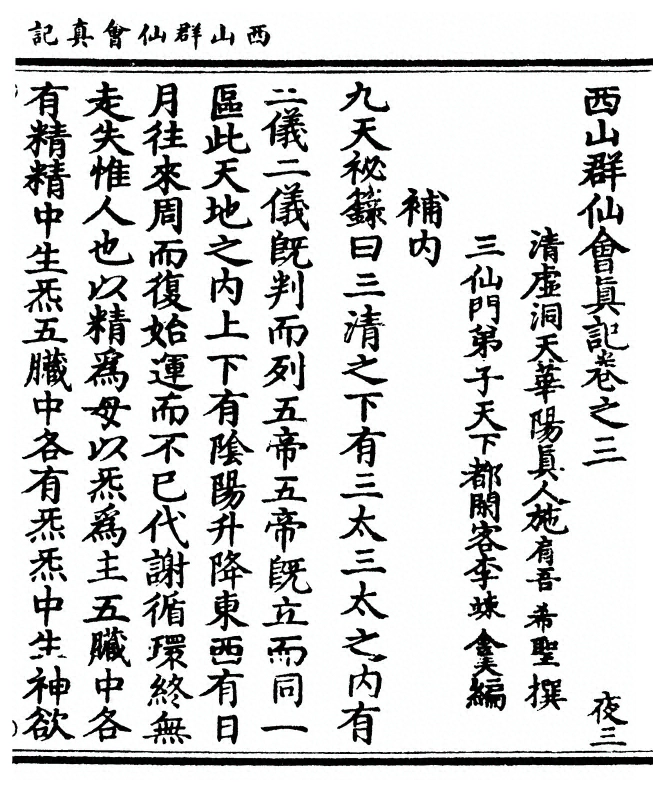 西山群仙會真記
西山群仙會眞記卷之三
夜三
清虛洞天華陽眞人施肩吾希聖撰
三仙門弟子天下都閑客李竦全美編
補内
九天祕籙曰三清之下有三太三太之内有
二儀二儀旣判而列五帝五帝旣立而同一
區此天地之内上下有隂陽升降東西有日
月往來周而復始運而不已代謝循環終無
走失惟人也以精爲母以炁爲主五臟中各
有精精中生炁五臟中各有炁炁中生神欲